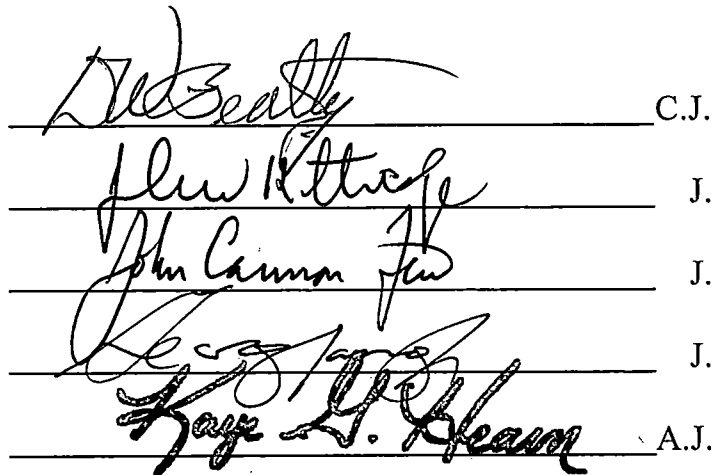 DWBeatty C.J.
John Kittredge J.
John Cannon Few J.
J.
Kaye G. Hearn A.J.